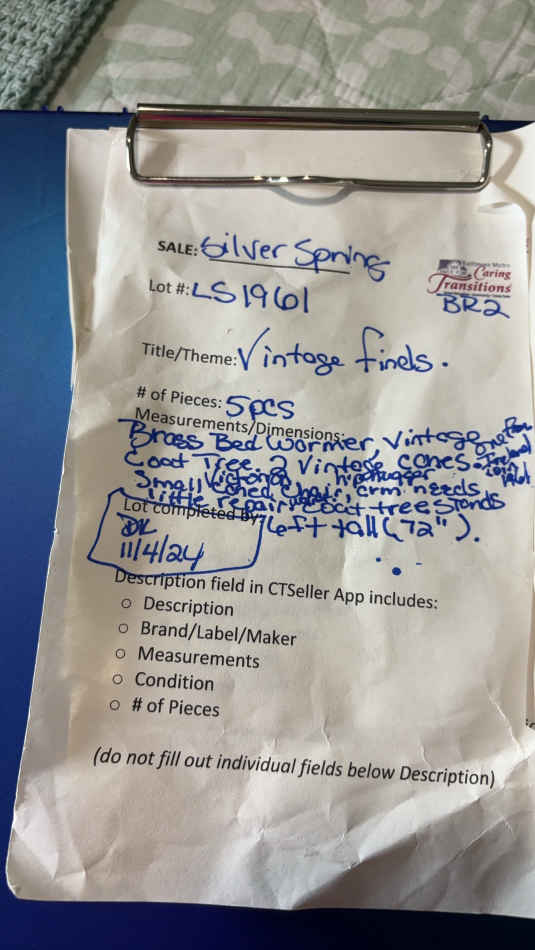 SALE: Silver Spring
Lot #: LS1961
Caring
Transitions
BR2
Title/Theme: Vintage finds.
# of Pieces: 5pcs
Measurements/Dimensions:
Brass Bed Warmer, Vintage
Coat Tree, 2 Vintage canes
one from
Ireland
1961
Small Victorian hiphugger
caned chair, arm needs
little repair, coat tree stands
6ft tall (72").
Lot completed by:
DK
11/4/24
Description field in CTSeller App includes:
○ Description
○ Brand/Label/Maker
○ Measurements
○ Condition
○ # of Pieces
(do not fill out individual fields below Description)